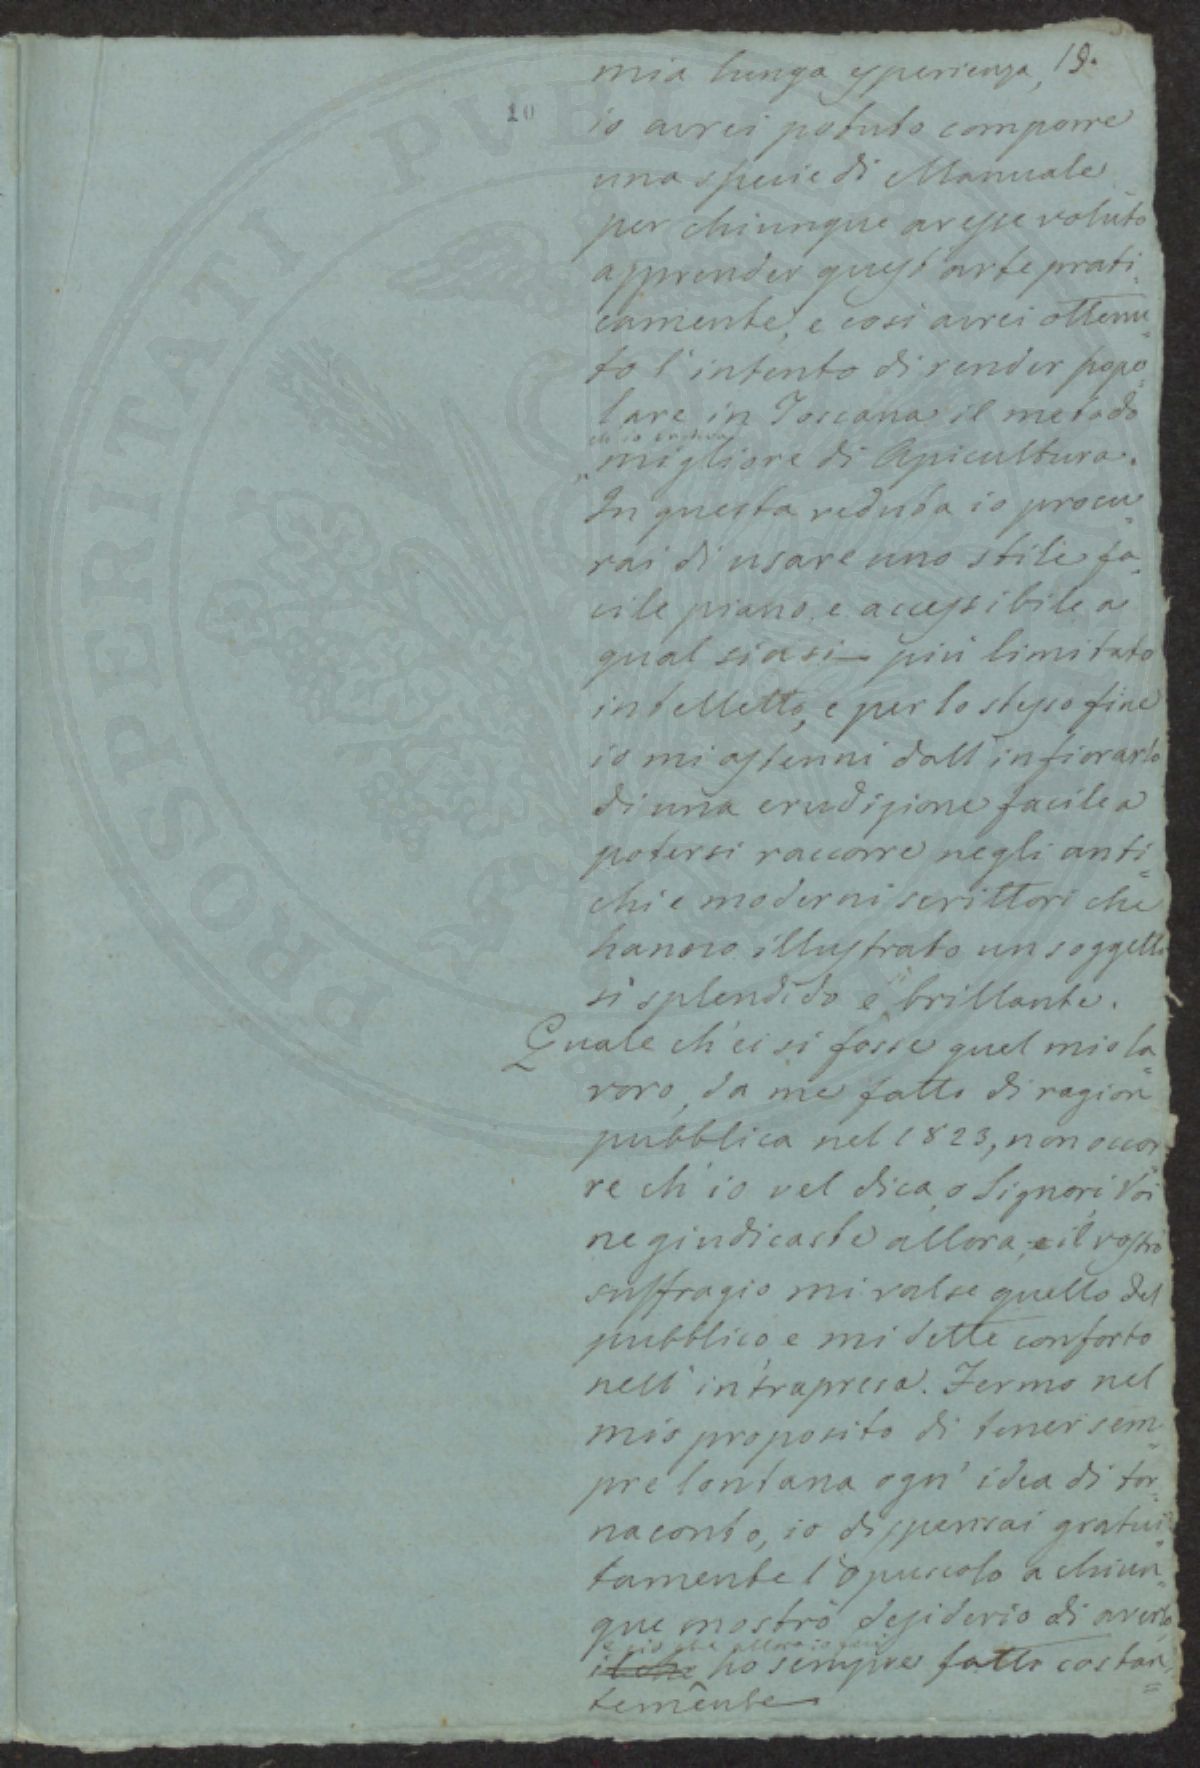 19.
10
mia lunga esperienza,
io avrei potuto comporre
una specie di Manuale
per chiunque avesse voluto
apprender quest'arte prati=
camente, e così avrei ottenu=
to l'intento di render popo=
lare in Toscana il metodo
ch'io credeva
migliore di Apicultura.
In questa veduta io procu=
rai di usare uno stile fa=
cile piano e accessibile a
qual siasi più limitato
intelletto, e per lo stesso fine
io mi astenni dall'infiorarlo
di una erudizione facile a
potersi raccorre negli anti=
chi e moderni scrittori che
hanno illustrato un soggetto
sì splendido e brillante.
Quale ch'ei si fosse quel mio la=
voro, da me fatto di ragion
pubblica nel 1823, non occor=
re ch'io vel dica, o Signori, Voi
ne giudicaste allora, e il vostro
suffragio mi valse quello del
pubblico e mi dette conforto
nell'intrapresa. Fermo nel
mio proposito di tener sem=
pre lontana ogn'idea di tor=
naconto, io dispensai gratui=
tamente l'opuscolo a chiun=
que mostrò desiderio di averlo
e ciò che allora io feci
il che ho sempre fatto costan=
temente
PROSPERITATI PVBLICAE